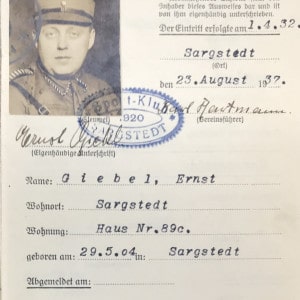 Inhaber dieses Ausweises dar und ist
von ihm eigenhändig unterschrieben.
Der Eintritt erfolgte am 1.4.32.
Sargstedt
(Ort)
23. August 1937.
(Vereinsführer)
1920
SARGSTEDT
Ernst Giebel
(Eigenhändige Unterschrift)
Name: Giebel, Ernst
Wohnort: Sargstedt
Wohnung: Haus Nr.89c.
geboren am: 29.5.04 in: Sargstedt
Abgemeldet am: